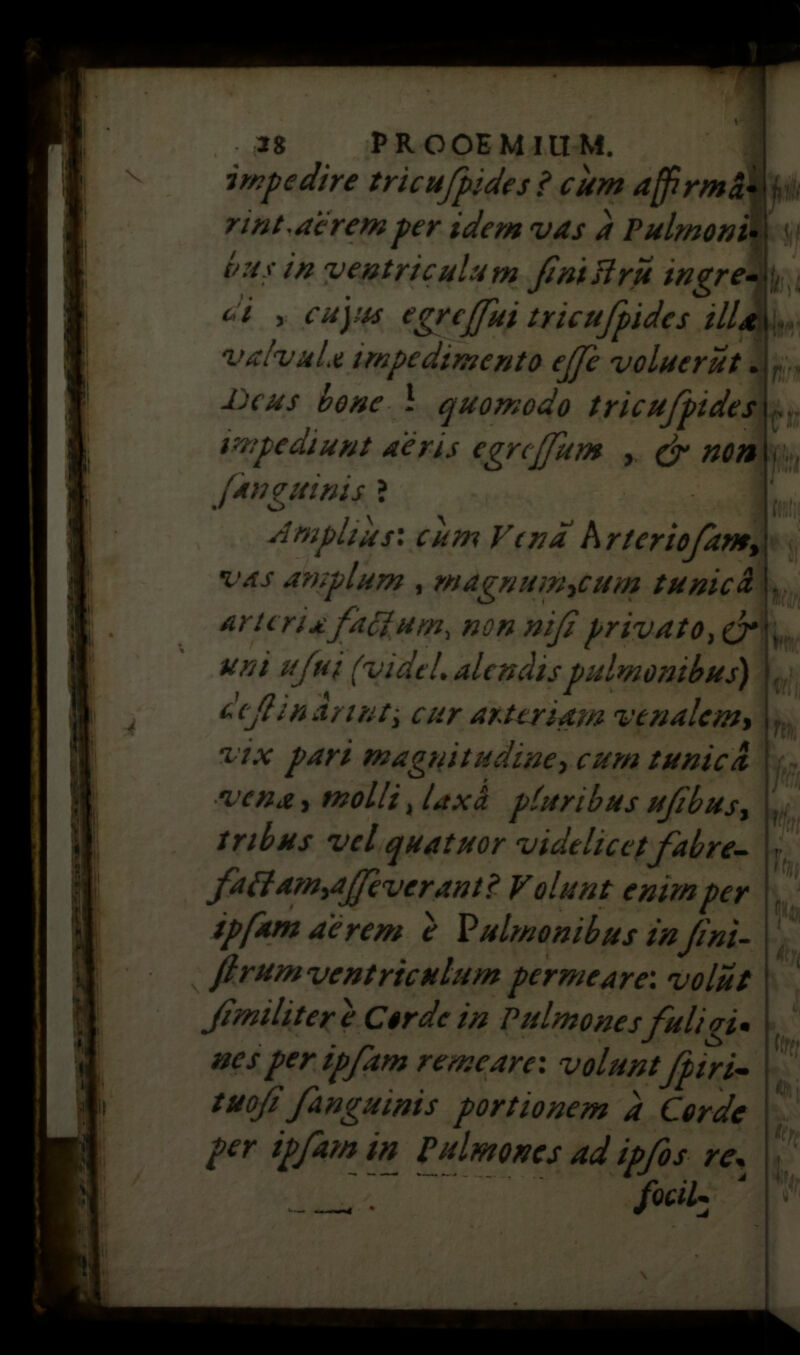 28 PROOEMIUM.
impedire tricuſpides? cùm affirmâ-
rint aërem per idem vas à Pulmoni-
bus in ventriculum ſiniſtrũ ingre-
di, cujus egreſſui tricuſpides illæ
valvulæ impedimento eſſe voluerũt.
Deus bone! quomodo tricuſpides
impediunt aëris egreſſum, & non
ſanguinis?
Ampliùs: cùm Venã Arterioſam,
vas amplum, magnum, cum tunicâ
arteriæ factum, non niſi privato, &
uni uſui (videl. alendis pulmonibus)
deſtinârint; cur arteriam venalem,
vix pari magnitudine, cum tunicâ
venæ, molli, laxâ pluribus uſibus,
tribus vel quatuor videlicet fabre-
factam, aſſeverant? Volunt enim per
ipſam aërem è Pulmonibus in ſini-
ſtrum ventriculum permeare: volũt
ſimiliter è Corde in Pulmones fuligi-
nes per ipſam remeare: volunt ſpiri-
tuoſi ſanguinis portionem à Corde
per ipſam in Pulmones ad ipſos re-
focil-